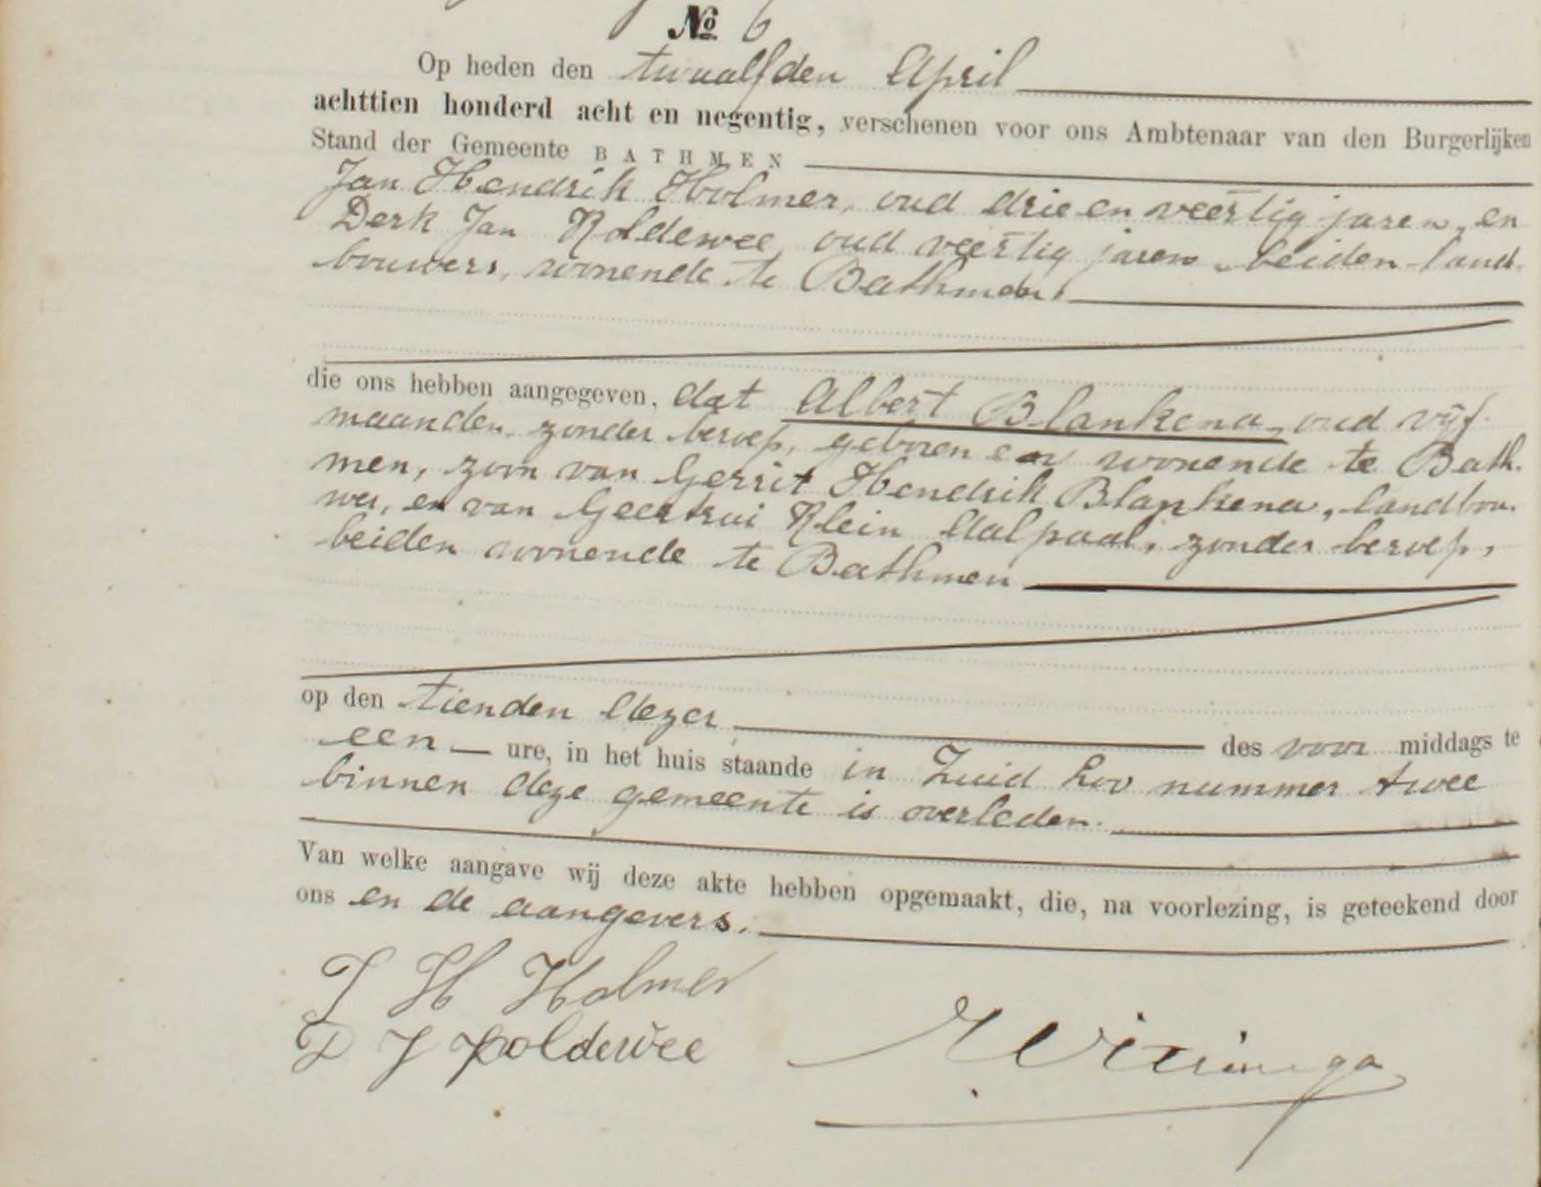 № 6
Op heden den twaalfden April
achttien honderd acht en negentig, verschenen voor ons Ambtenaar van den Burgerlijken
Stand der Gemeente BATHMEN
Jan Hendrik Holmer, oud drie en veertig jaren, en
Derk Jan Roldewee, oud veertig jaren, beiden land
bouwers, wonende te Bathmen,
die ons hebben aangegeven, dat Albert Blankena, oud vijf
maanden, zonder beroep, geboren en wonende te Bath
men, zoon van Gerrit Hendrik Blankena, landbou
wer, en van Geertrui Klein Dalpaal, zonder beroep,
beiden wonende te Bathmen
op den tienden dezer des voor middags te
een ure, in het huis staande in Zuid Loo nummer twee
binnen deze gemeente is overleden.
Van welke aangave wij deze akte hebben opgemaakt, die, na voorlezing, is geteekend door
ons en de aangevers.
J H Holmer
D J Roldewee